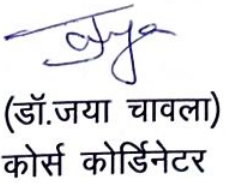 (डॉ.जया चावला)
कोर्स कोर्डिनेटर